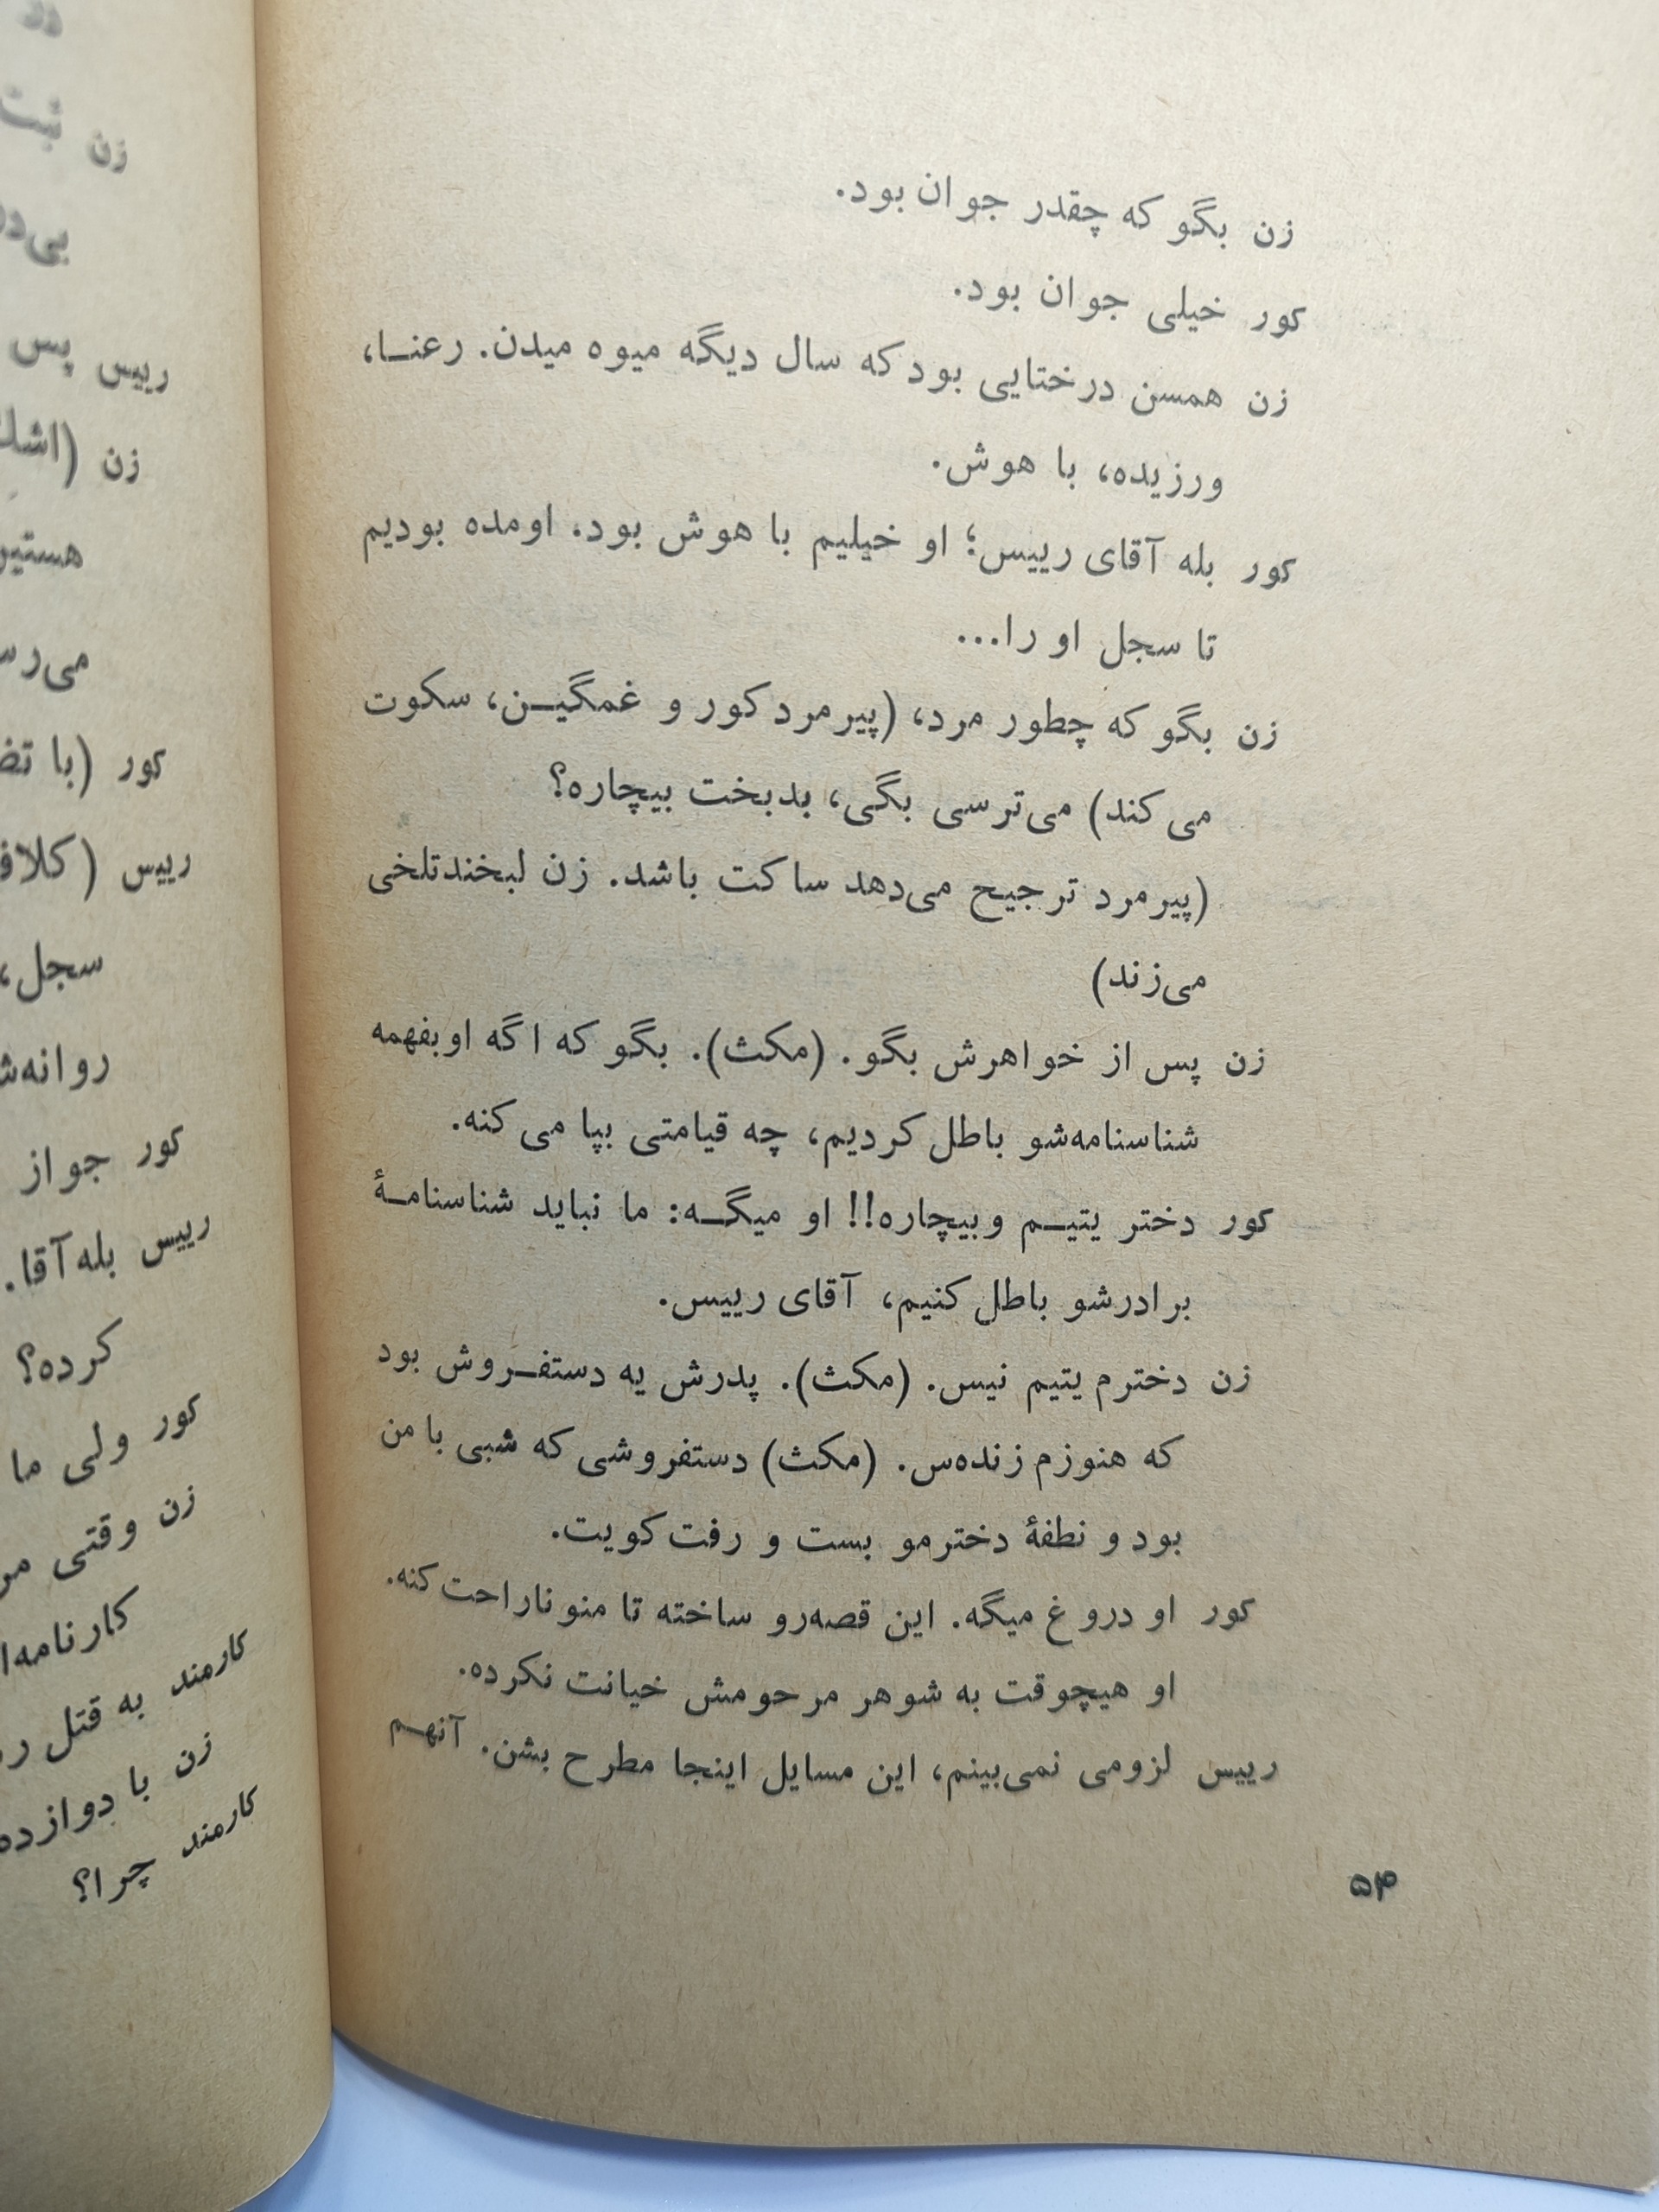 زن بگو که چقدر جوان بود.
کور خیلی جوان بود.
زن همسن درختایی بود که سال دیگه میوه میدن. رعنا،
ورزیده، با هوش.
کور بله آقای رییس؛ او خیلیم با هوش بود. اومده بودیم
تا سجل او را...
زن بگو که چطور مرد، (پیرمرد کور و غمگین، سکوت
می‌کند) می‌ترسی بگی، بدبخت بیچاره؟
(پیرمرد ترجیح می‌دهد ساکت باشد. زن لبخند تلخی
می‌زند)
زن پس از خواهرش بگو. (مکث). بگو که اگه او بفهمه
شناسنامه‌شو باطل کردیم، چه قیامتی بپا می‌کنه.
کور دختر یتیم و بیچاره!! او میگه: ما نباید شناسنامهٔ
برادرشو باطل کنیم، آقای رییس.
زن دخترم یتیم نیس. (مکث). پدرش یه دستفروش بود
که هنوزم زنده‌س. (مکث) دستفروشی که شبی با من
بود و نطفهٔ دخترمو بست و رفت کویت.
کور او دروغ میگه. این قصه‌رو ساخته تا منو ناراحت کنه.
او هیچوقت به شوهر مرحومش خیانت نکرده.
رییس لزومی نمی‌بینم، این مسایل اینجا مطرح بشن. آنهم
۵۴
زن ثبت
رییس پس
زن (اشک
می‌رس
کور (با
رییس (کلاف
سجل،
کور جواز
رییس بله آقا.
کرده؟
کور ولی ما
زن وقتی
کارمند به قتل
زن با دوازده
کارمند چرا؟